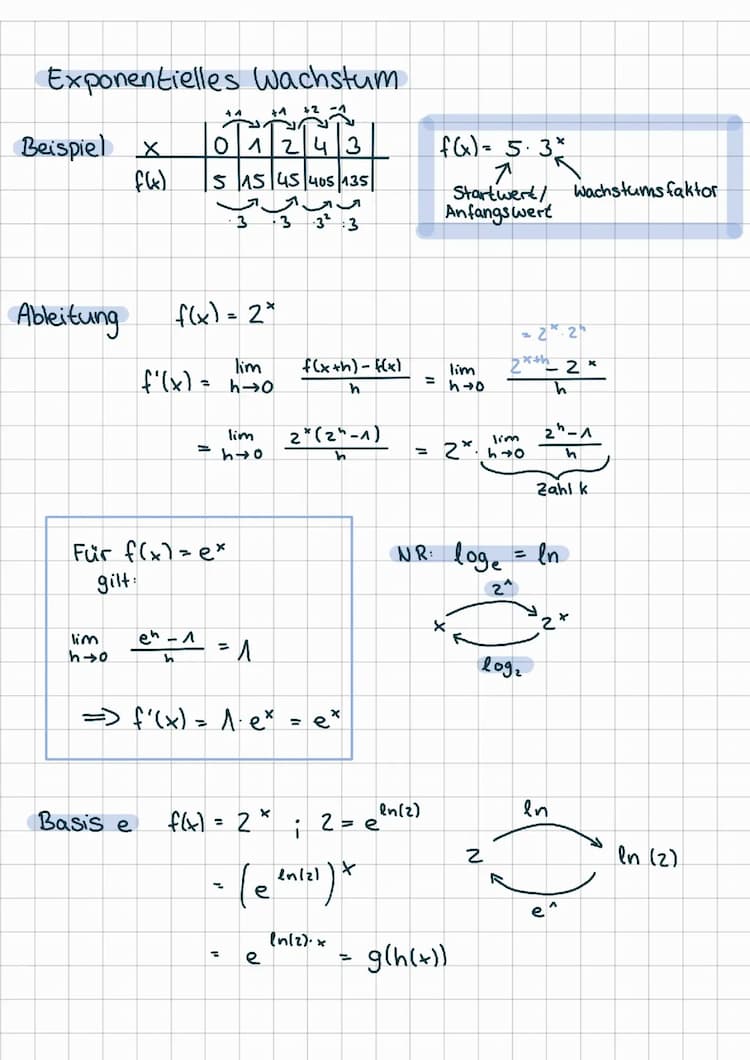 Exponentielles Wachstum
+1 +1 +2 -1
Beispiel x 0 1 2 4 3
f(x) 5 15 45 405 135
·3 ·3 ·3² :3
f(x) = 5 · 3ˣ
Startwert/ Anfangswert
Wachstumsfaktor
Ableitung f(x) = 2ˣ
= 2ˣ · 2ʰ
f'(x) = lim h→0 (f(x+h) - f(x))/h = lim h→0 (2ˣ⁺ʰ - 2ˣ)/h
= lim h→0 2ˣ(2ʰ-1)/h = 2ˣ · lim h→0 (2ʰ-1)/h
Zahl k
Für f(x) = eˣ
gilt:
lim h→0 (eʰ - 1)/h = 1
⇒ f'(x) = 1 · eˣ = eˣ
NR: logₑ = ln
2^
x 2ˣ
log₂
Basis e f(x) = 2ˣ ; 2 = e^ln(2)
= (e^ln(2))ˣ
= e^ln(2)·x = g(h(x))
ln
2 ln(2)
e^